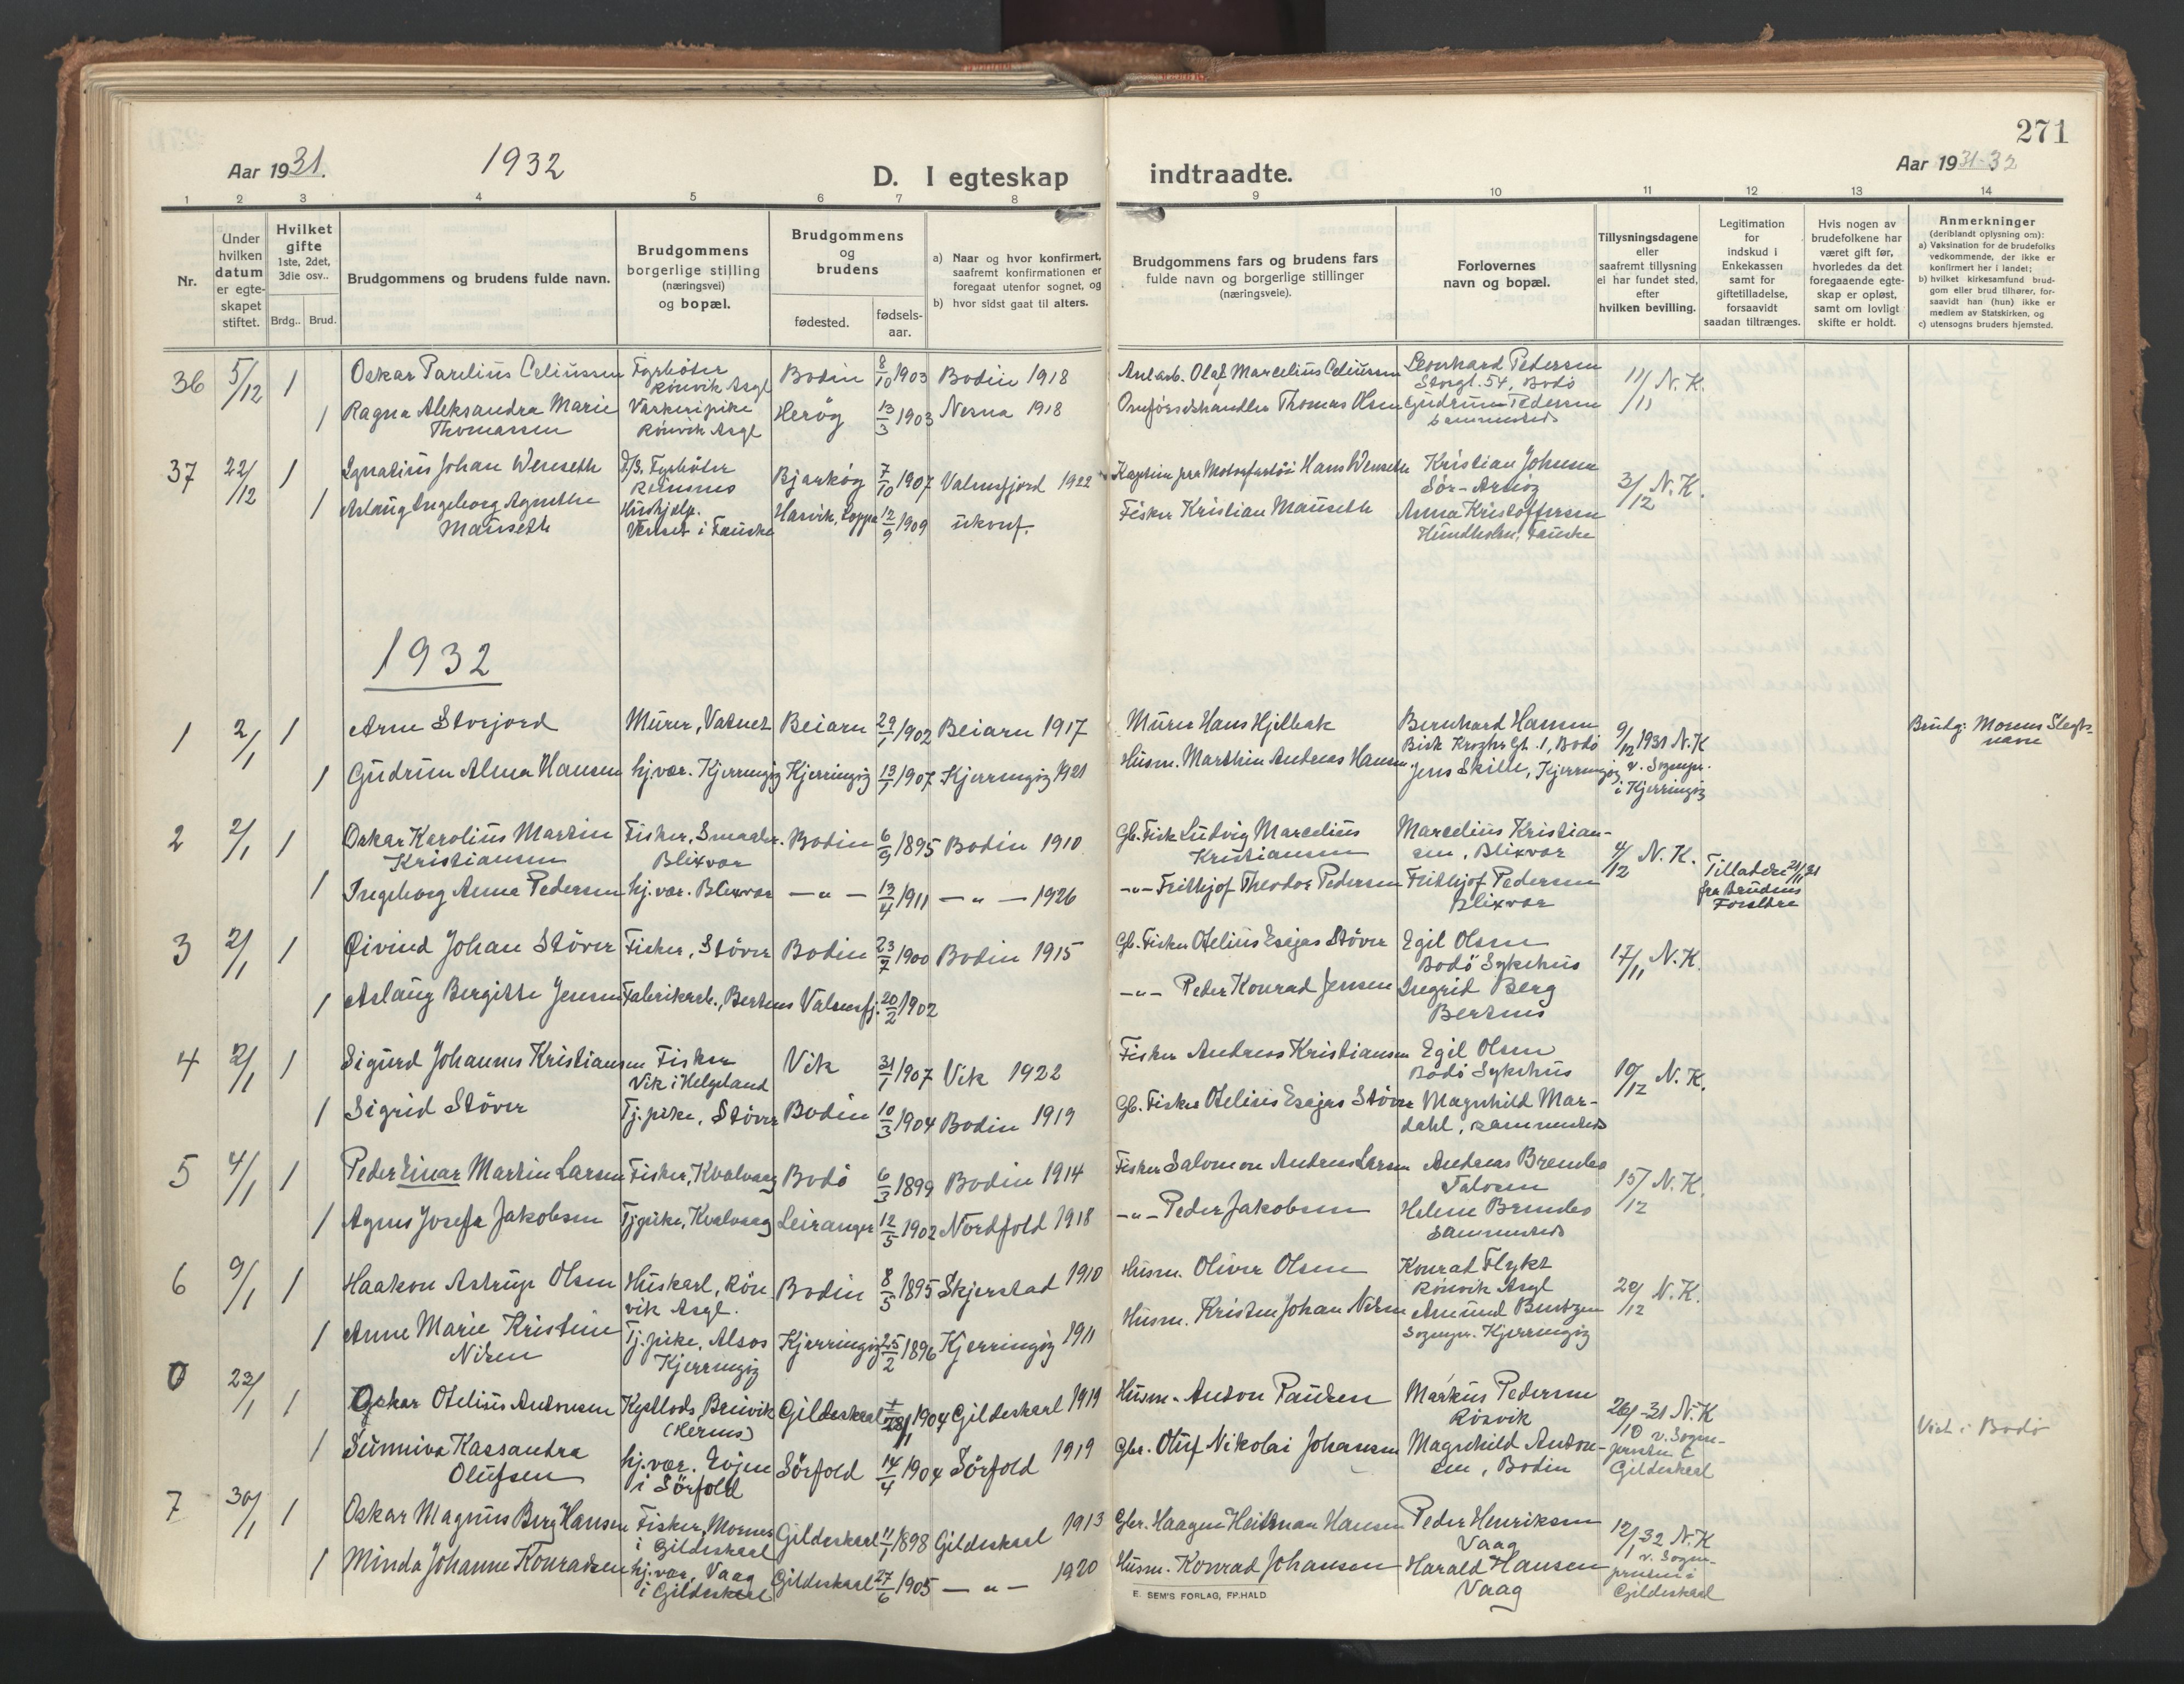 271
Aar 1931.
1932
D. I egteskap indtraadte.
Aar 1931-32
1 2 3 4 5 6 7 8 9 10 11 12 13 14
Nr.
Under hvilken datum er egteskapet stiftet.
Hvilket gifte 1ste, 2det, 3die osv..
Brdg.. Brud.
Brudgommens og brudens fulde navn.
Brudgommens borgerlige stilling (næringsvei) og bopæl.
Brudgommens og brudens
fødested.
fødsels-aar.
a) Naar og hvor konfirmert, saafremt konfirmationen er foregaat utenfor sognet, og
b) hvor sidst gaat til alters.
Brudgommens fars og brudens fars fulde navn og borgerlige stillinger (næringsveie).
Forlovernes navn og bopæl.
Tillysningsdagene eller saafremt tillysning ei har fundet sted, efter hvilken bevilling.
Legitimation for indskud i Enkekassen samt for giftetilladelse, forsaavidt saadan tiltrænges.
Hvis nogen av brudefolkene har været gift før, hvorledes da det foregaaende egteskap er opløst, samt om lovligt skifte er holdt.
Anmerkninger (deriblandt oplysning om):
a) Vaksination for de brudefolks vedkommende, der ikke er konfirmert her i landet;
b) hvilket kirkesamfund brudgom eller brud tilhører, forsaavidt han (hun) ikke er medlem av Statskirken, og
c) utensogns bruders hjemsted.
36 5/12 1 Oskar Parelius Celiussen Fyrbøter Rønvik Asyl Bodin 8/10 1903 Bodin 1918 Anl.arb. Olaf Marcelius Celiussen Leonhard Pedersen Storgt. 54, Bodø 11/11 N.K.
1 Ragna Aleksandra Marie Thomassen Vaskeripike Rønvik Asyl Herøy 13/3 1903 Nesna 1918 Thomas Olsen Gudrun Pedersen sammesteds
37 22/12 1 Ignatius Johan Wenseth D/S. Fyrbøter Bjarkøy 7/10 1907 Valnesfjord 1922 Hans Wenseth Kristian Johnsen Sør-Arnøy 3/12 N.K.
1 Aslaug Ingeborg Agnethe Mauseth Hushjelp. Venset i Fauske Hasvik, Loppa 12/9 1909 ukonf. Fisker Kristian Mauseth Anna Kristoffersen Hundholm, Fauske
1932
1 2/1 1 Arne Storjord Murer, Vatnet Beiarn 29/1 1902 Beiarn 1917 Murer Hans Hjelbak Bernhard Hansen Bisk Kroghs Gt. 1, Bodø 9/12 1931 N.K v. Sognepr. i Kjerringøy Brudg: Morens Slegtsnavn
1 Gudrun Alma Hansen hj.vær. Kjerringøy Kjerringøy 13/1 1907 Kjerringøy 1921 Husm. Marthin Andreas Hansen. Jens Skille, Kjerringøy
2 2/1 1 Oskar Karolius Martin Kristiansen Fisker, Smaabr. Blixvær Bodin 6/9 1895 Bodin 1910 Gb. Fisk Ludvig Marcelius Kristiansen Marcelius Kristiansen, Blixvær 4/12 N.K. Tilladelse 21/11 31 fra Brudens Forældre
1 Ingeborg Anna Pedersen hj.vær. Blixvær — " — 13/4 1911 — " — 1926 —"— Frithjof Theodor Pedersen Frithjof Pedersen Blixvær
3 2/1 1 Øivind Johan Støver Fisker, Støver Bodin 23/7 1900 Bodin 1915 Gb. Fisker Otelius Esajas Støver Egil Olsen Bodø Sykehus 17/11 N.K.
1 Aslaug Bergitte Jensen Fabrikarb., Bertnes Valnesfj. 20/2 1902 —"— Peder Konrad Jensen Ingrid Berg Bertnes
4 2/1 1 Sigurd Johannes Kristiansen Fisker Vik i Helgeland Vik 31/1 1907 Vik 1922 Fisker Andreas Kristiansen Egil Olsen Bodø Sykehus 10/12 N.K.
1 Sigrid Støver Tj.pike, Støver Bodin 10/3 1904 Bodin 1919 Gb. Fisker Otelius Esajas Støver Magnhild Mardahl, sammesteds
5 4/1 1 Peder Einar Martin Larsen Fisker, Kvalvaag Bodø 6/3 1899 Bodin 1914 Fisker Salomon Andreas Larsen Andreas Brendes Valosen 15/12 N.K.
1 Agnes Josefa Jakobsen Tj.pike, Kvalvaag Leiranger 12/5 1902 Nordfold 1918 —"— Peder Jakobsen Helene Brendes sammesteds
6 9/1 1 Haakon Astrup Olsen Huskarl, Rønvik Asyl. Bodin 8/5 1895 Skjerstad 1910 Husm. Oliver Olsen Konrad Flykt Rønvik Asyl 20/12 N.K.
1 Anne Marie Kristine Nilsen Tj.pike, Alsos Kjerringøy Kjerringøy 25/2 1896 Kjerringøy 1911 Husm. Kristen Johan Nilsen Amund Bentzen Sognepr. Kjerringøy
0 23/1 1 Oskar Otelius Antonsen Breivik Gildeskaal 28/1 1904 Gildeskaal 1919 Husm. Anton Paulsen Markus Pedersen Rønvik 26/10-31 N.K v. Sognepresten i Gildeskaal Viet i Bodø
1 Sunniva Kassandra Olufsen hj.vær. Evjen i Sørfold Sørfold 14/4 1904 Sørfold 1919 Gbr. Oluf Nikolai Johansen Magnhild Antonsen, Bodin
7 30/1 1 Oskar Magnus Berg Hansen Fisker, Mornes i Gildeskaal Gildeskaal 11/1 1898 Gildeskaal 1913 Gbr. Haagen Heitman Hansen Peder Henriksen Vaag 12/1-32 N.K v. Sognepresten i Gildeskaal
1 Minda Johanne Konradsen hj.vær, Vaag i Gildeskaal Gildeskaal 27/6 1905 — " — 1920 Husm. Konrad Johansen Harald Hansen Vaag
E. SEM'S FORLAG, FR.HALD